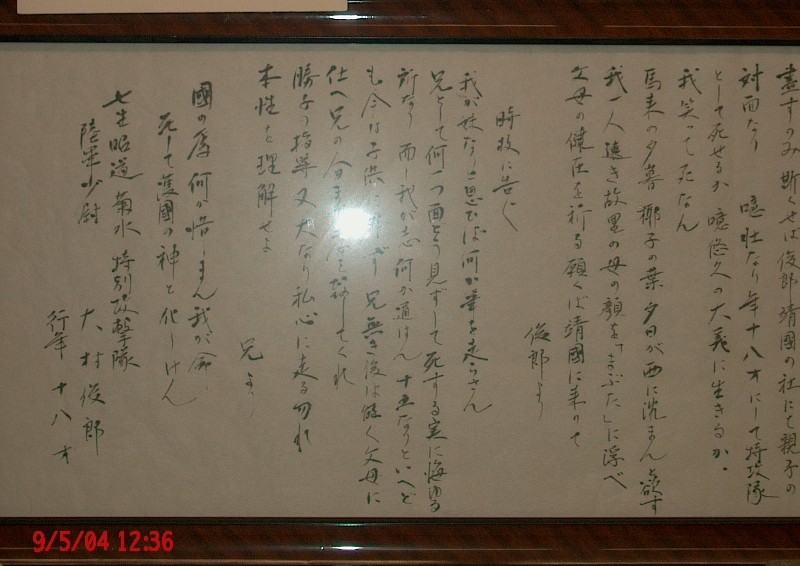 盡すのみ斯くせは俊郎靖國の社にて親子の
対面なり 噫壮なり年十八才にして特攻隊
として死せるか 噫悠久の大義に生きるか.
我笑って死なん
馬来の夕暮椰子の葉夕日が西に沈まんと欲す
我一人遠き故里の母の顔を「まぶた」に浮べ
父母の健在を祈る願くば靖國に来りて
俊郎より
時枝に告ぐ
我が妹なりと思ひば何か筆を走らさん
兄として何一つ面どう見ずして死する実に悔ゆる
許なり 而し我が志何か通けん 十五なりといへど
も今は子供に 兄無き後は能く父母に
仕へ兄の分ま してくれ
勝子の指導又大なり私心に走る勿れ
本性を理解せよ
兄より
國の為何か惜しまん我が命
死して護國の神と化しけん
七生昭道 菊水 特別攻撃隊
陸軍少尉
大村俊郎
行年 十八才
9/5/04 12:36